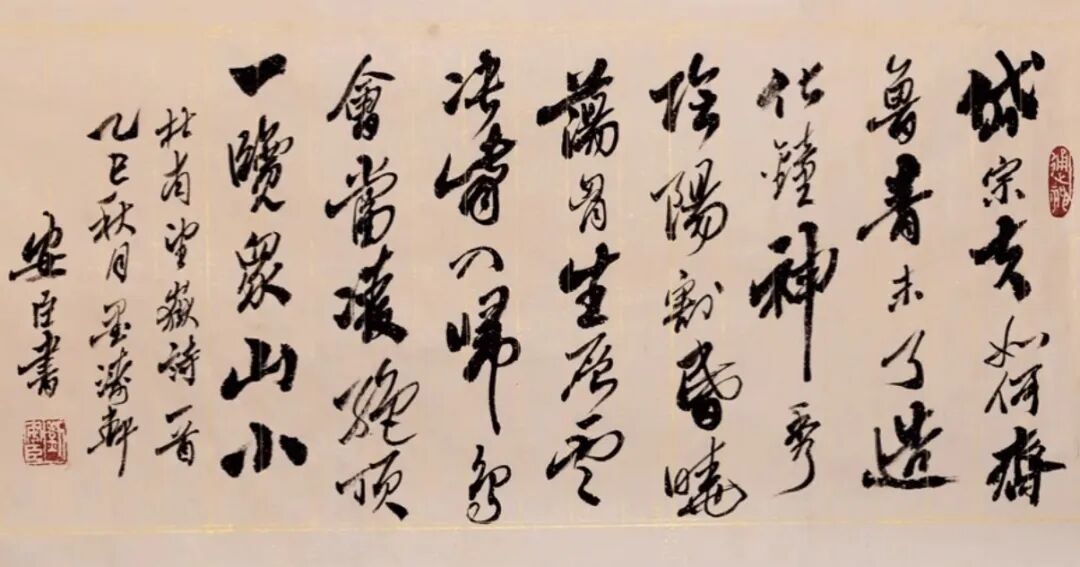 岱宗夫如何齊
魯青未了造
化鐘神秀
陰陽割昏曉
蕩胷生层云
决眥入歸鸟
會當凌絕頂
一覽眾山小
杜甫望嶽詩一首
乙巳秋月墨濤軒
安臣書